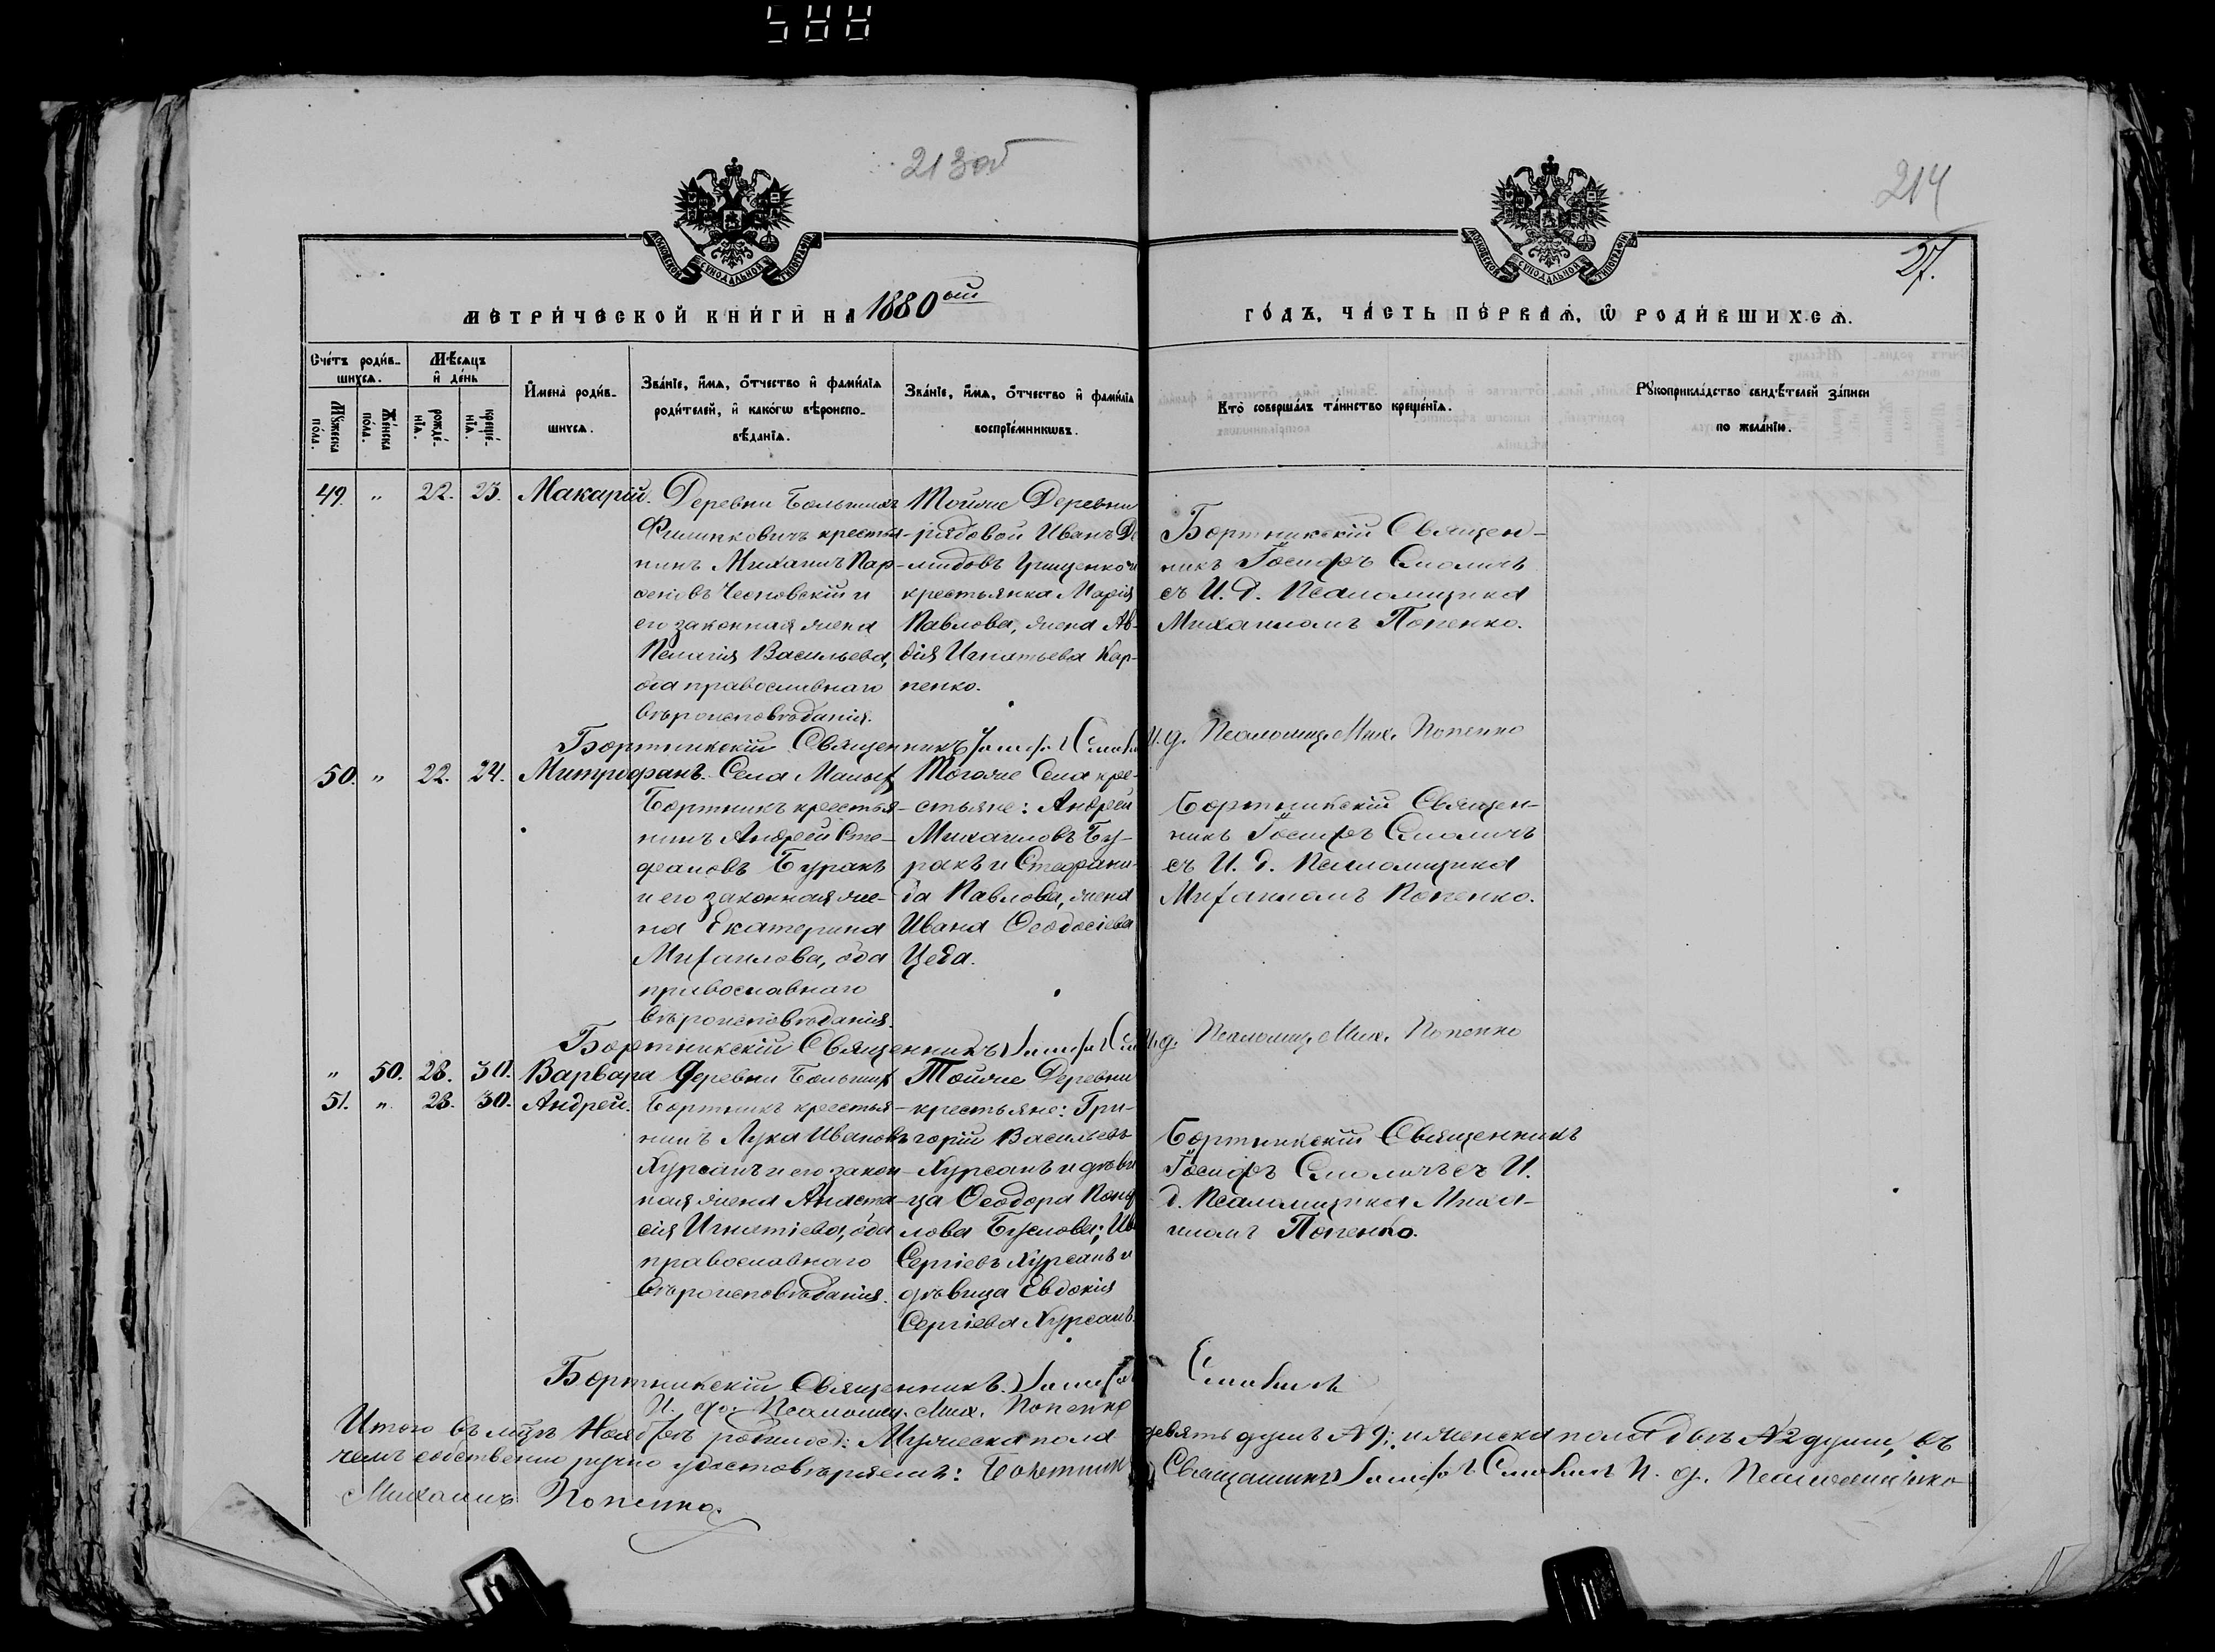 588
213 об
214
27.
МОСКОВСКОЙ СѴНОДАЛЬНОЙ ТИПОГРАФІИ
МОСКОВСКОЙ СѴНОДАЛЬНОЙ ТИПОГРАФІИ
МЕТРИ́ЧЕСКОЙ КНИ́ГИ НА 1880ый
ГО́ДЪ, ЧА́СТЬ ПЕ́РВАѦ, Ѿ РОДИ́ВШИХСѦ.
Сче́тъ роди́в-
шихсѧ.
Мꙋ́жеска по́ла.
Же́нска по́ла.
Мѣ́сѧцъ
и҆ де́нь
рожде́-нїѧ.
креще́-нїѧ.
И҆мена̀ роди́в-
шихсѧ.
Зва́нїе, и҆́мѧ, ѻ҆́тчество и҆ фами́лїѧ
роди́телей, и҆ како́гѡ вѣроиспо-
вѣ́данїѧ.
Зва́нїе, и҆́мѧ, ѻ҆́тчество и҆ фами́лїѧ
воспрїе́мникѡвъ.
Кто̀ соверша́лъ та́инство креще́нїѧ.
Рꙋкоприкла́дство свидѣ́телей за́писи
по жела́нїю.
49. " 22. 23. Макарій.
Деревни Большихъ
Филипковичъ крестья-
нинъ Михаилъ Пар-
феновъ Чесновскій и
его законная жена
Пелагія Васильева,
оба православнаго
вѣроисповѣданія.
Тойже Деревни
рядовой Иванъ Де
мидовъ Грищенко и
крестьянка Марія
Павлова, жена Ав-
дія Игнатьева Кар-
пенко.
Бортникскій Священ-
никъ Іосифъ Смоличъ
съ И. д. Псаломщика
Михаиломъ Попенко.
Бортникскій Священникъ Іосифъ Смолич И. д. Псаломщ. Мих. Попенко
50. " 22. 24. Митрофанъ.
Села Малыхъ
Бортникъ крестья-
нинъ Андрей Сте-
фановъ Буракъ
и его законная же-
на Екатерина
Михаилова, оба
православнаго
вѣроисповѣданія.
Тогоже Села кре-
стьяне: Андрей
Михаиловъ Бу-
ракъ и Стефани-
да Павлова, жена
Ивана Ѳеодосіева
Цеба.
Бортникскій Священ-
никъ Іосифъ Смоличъ
съ И. д. Псаломщика
Михаиломъ Попенко.
Бортникскій Священникъ Іосифъ И. д. Псаломщ. Мих. Попенко
" 50. 28. 30. Варвара
51. " 28. 30. Андрей.
Деревни Большихъ
Бортникъ крестья-
нинъ Лука Ивановъ
Хурсанъ и его закон-
ная жена Анаста-
сія Игнатіева, оба
православнаго
вѣроисповѣданія.
Тойже Деревни
крестьяне: Гри-
горій Васильевъ
Хурсанъ и дѣви
ца Ѳеодора
лова Буслова; Ив
Сергіевъ Хурсанъ и
дѣвица Евдокія
Сергіева Хурсанъ.
Бортникскій Священникъ
Іосифъ Смоличъ съ И.
д. Псаломщика Миха-
иломъ Попенко.
Бортникскій Священникъ Іосифъ Смоличъ
И. до. Псаломщ. Мих. Попенко
Итого въ мцѣ Ноябрѣ родилось: Мужеска пола девять душъ №9; и женска пола двѣ №2 души, въ
чемъ собственноручно удостовѣряемъ: Священникъ Іосифъ Смоличъ И. д. Псаломщика
Михаилъ Попенко.